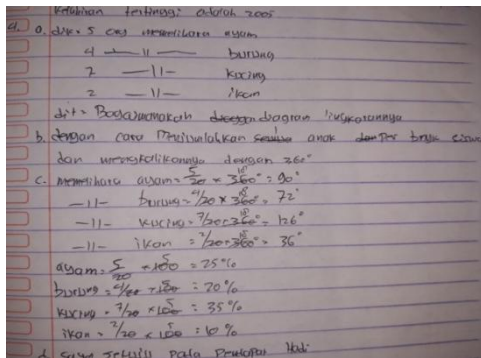 Kelahiran tertinggi adalah 2005
a. dik = 5 org memelihara ayam
4 —— 11 —— burung
7 —— 11 — kucing
2 —— 11 — ikan
dit = Bagaimanakah diagram lingkarannya
b. dengan cara Menjumlahkan anak siswa
dan mengkalikannya dengan 360°
c. Memelihara ayam = 5/20 × 360° = 90°
— 11 — burung = 4/20 × 360° = 72°
— 11 — kucing = 7/20 × 360° = 126°
— 11 — ikan = 2/20 × 360° = 36°
ayam = 5/20 × 100 = 25%
burung = 4/20 × 100 = 20%
kucing = 7/20 × 100 = 35%
ikan = 2/20 × 100 = 10%
d. Saya setuju pada Hadi